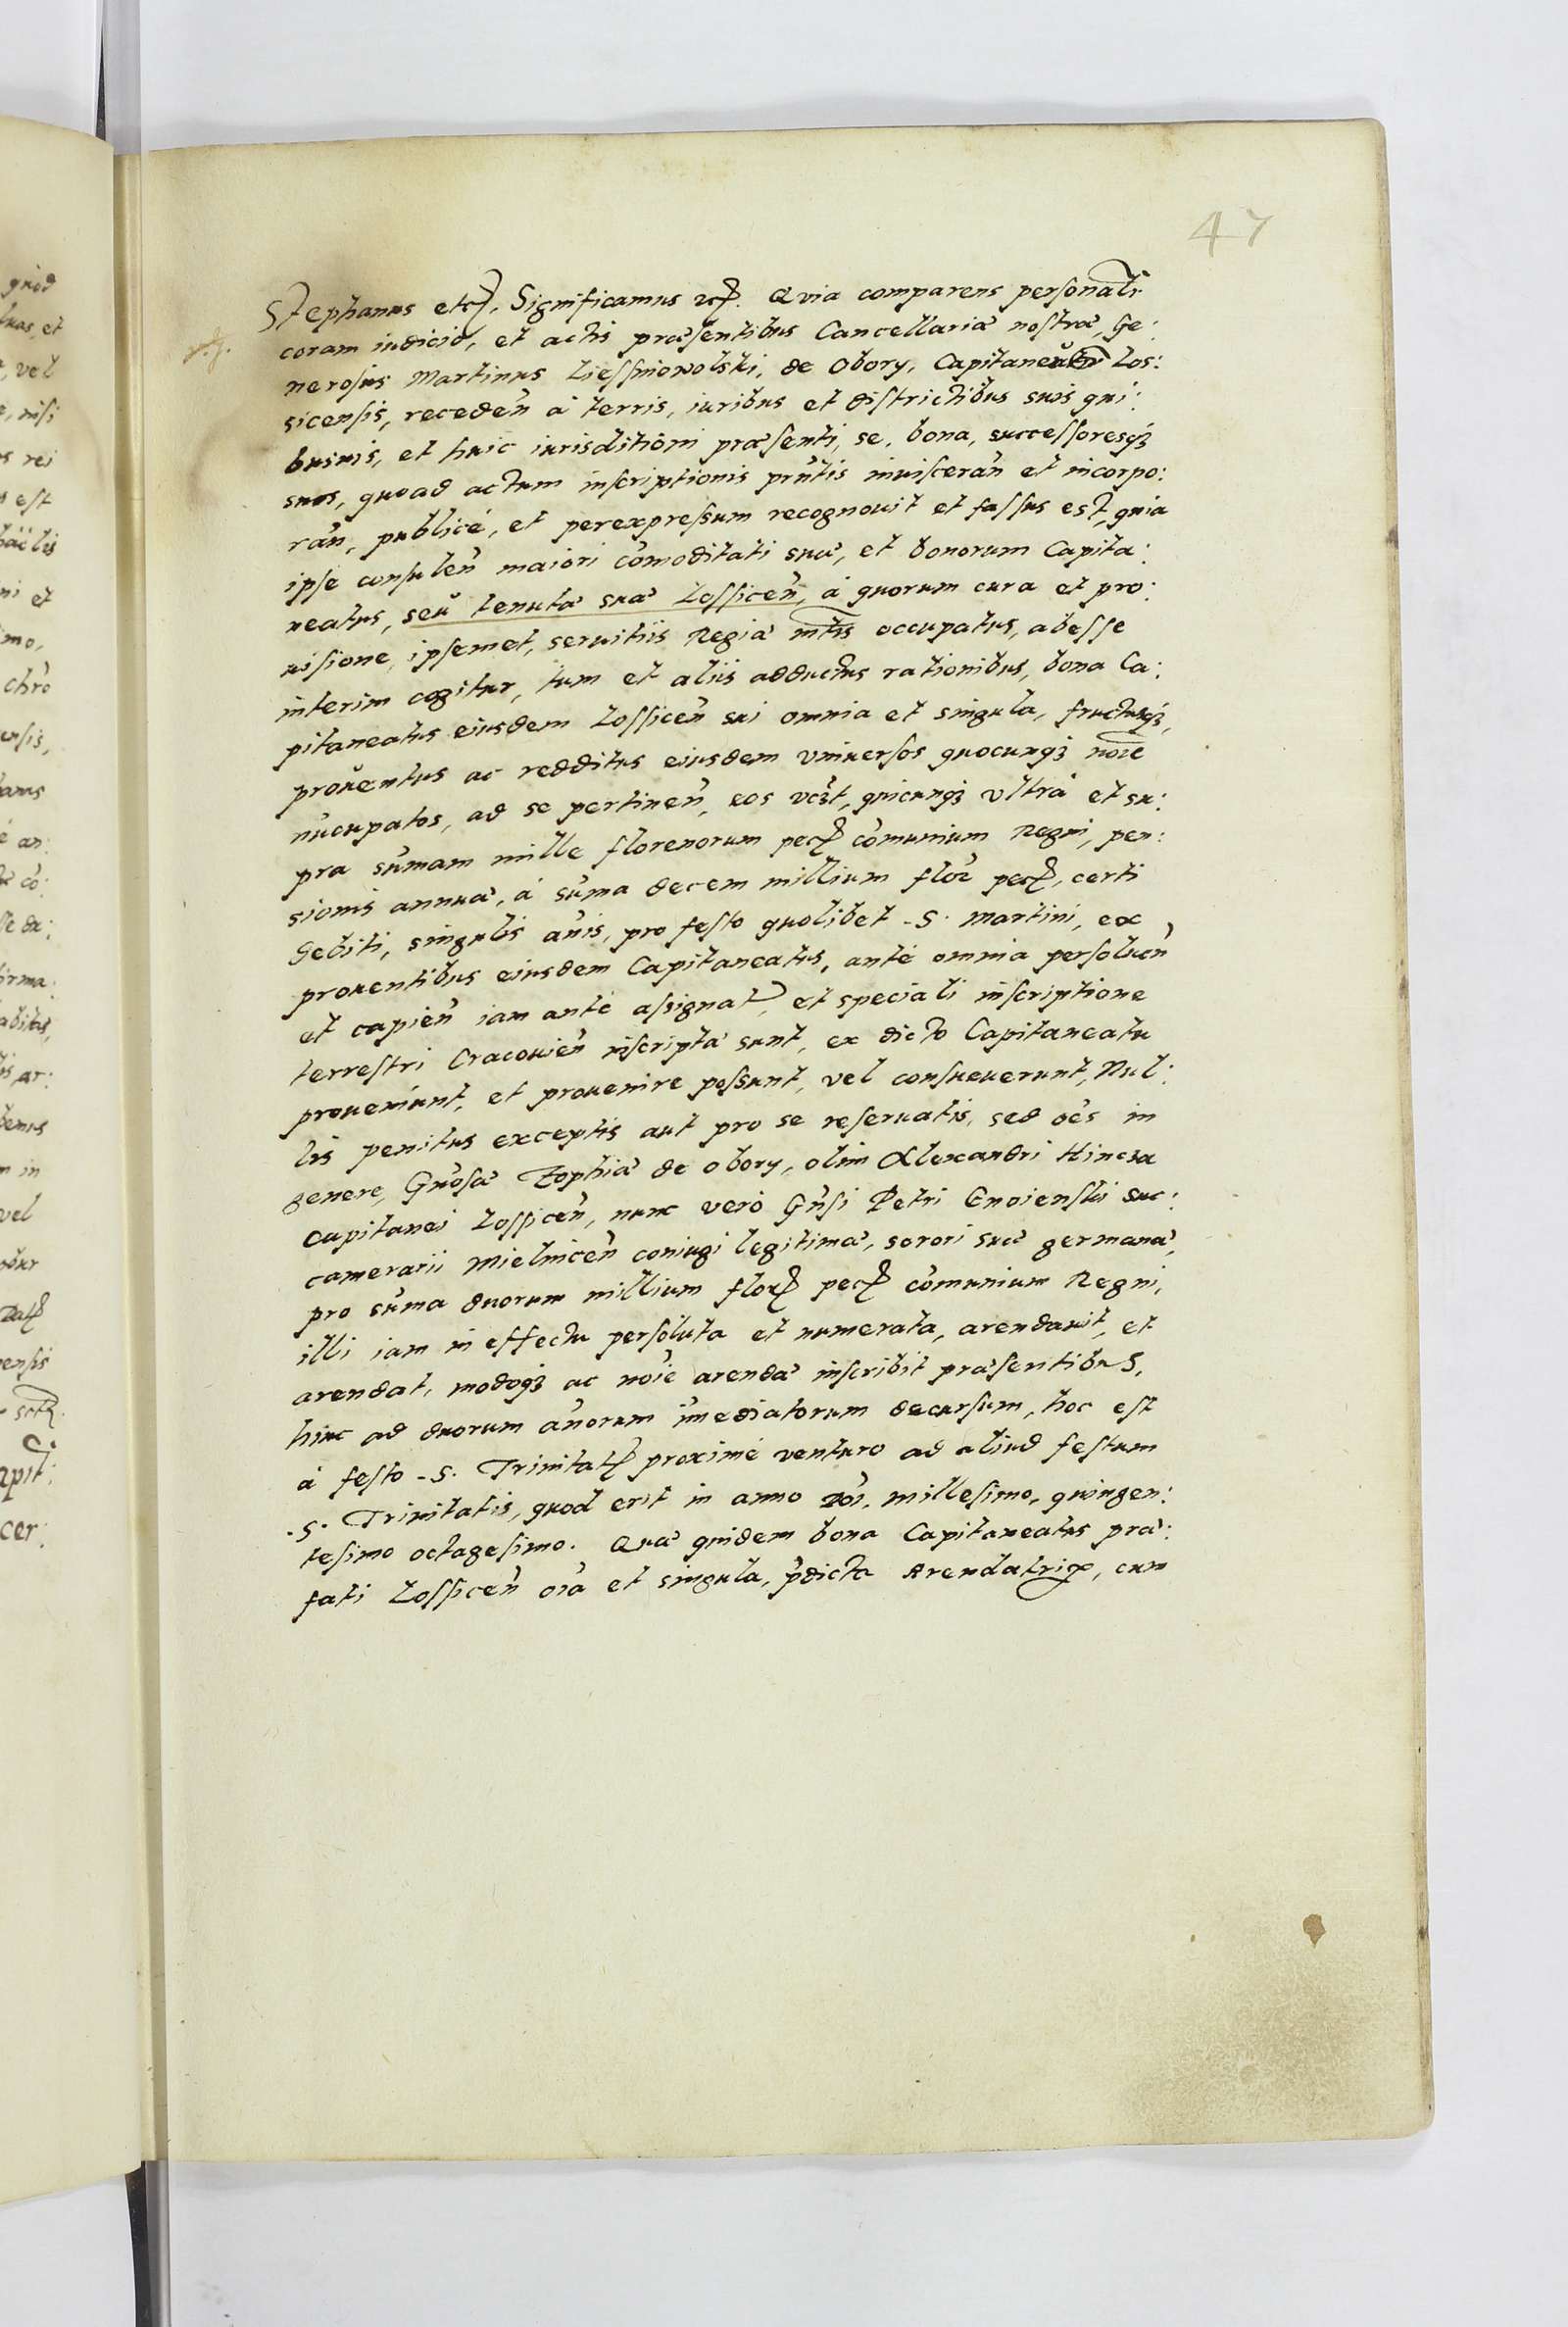 47
Stephanus etc. Significamus etc. Quia comparens personalr
coram iudicio, et actis præsentibus Cancellariæ nostræ, Ge:
nerosus Martinus Liessniowolski, de Obory, Capitaneus Los:
sicensis, receden̄ à terris, iuribus et districtibus suis qui:
busuis, et huic iurisditioni præsenti, se, bona, successoresq3
suos, quoad actum inscriptionis pn̄tis inuisceran̄ et incorpo:
ran̄, publicé, et per expressum recognouit et fassus est, quia
ipse consulen̄ maiori com̄oditati suæ, et bonorum Capita:
neatus, seu tenutæ suæ Lossicen̄, à quorum cura et pro:
uisione, ipsemet, seruitiis Regiæ mt̄is occupatus, abesse
interim cogitur, tum et aliis adductus rationibus, bona Ca:
pitaneatus eiusdem Lossicen̄ sui omnia et singula, fructusq3,
prouentus ac redditus eiusdem vniuersos quocunq3 no̅ie
nu̅cupatos, ad se pertinen̄, eos vc3t, quicunq3 vltrà et su:
pra sum̄am mille florenorum pec com̄unium Regni, pen:
sionis annuæ, à sum̄a decem millium flor pec, certi
debiti, singulis an̄is, pro festo quolibet S. Martini, ex
prouentibus eiusdem Capitaneatus, anté omnia persoluen̄
et capien̄ iam anté assignat, et speciali inscriptione
terrestri Cracouien̄ inscripta sunt, ex dicto Capitaneatu
proueniunt, et prouenire possunt, vel consueuerunt, Nul:
lis penitus exceptis aut pro se reseruatis, sed oēs in
genere, Gn̄osæ Zophiæ de Obory, olim Alexandri Hincza
Capitanei Lossicen̄, nunc veró Gn̄si Petri Gnoienski suc:
camerarii Mielnicen̄ coniugi legitimæ, sorori suæ germanæ,
pro sum̄a duorum millium flor pec com̄unium Regni,
illi iam in effectu persoluta et numerata, arendauit, et
arendat, modoq3 ac no̅ie arendæ inscribit præsentibus,
hinc ad duorum an̄orum im̄ediatorum decursum, hoc est
à festo S. Trinitat proximé venturo ad aliud festum
S. Trinitatis, quod erit in anno Do̅i, millesimo, quingen:
tesimo octagesimo. Quæ quidem bona Capitaneatus præ:
fati Lossicen̄ oi̅a et singula, p̄dicta Arendatrix, cum